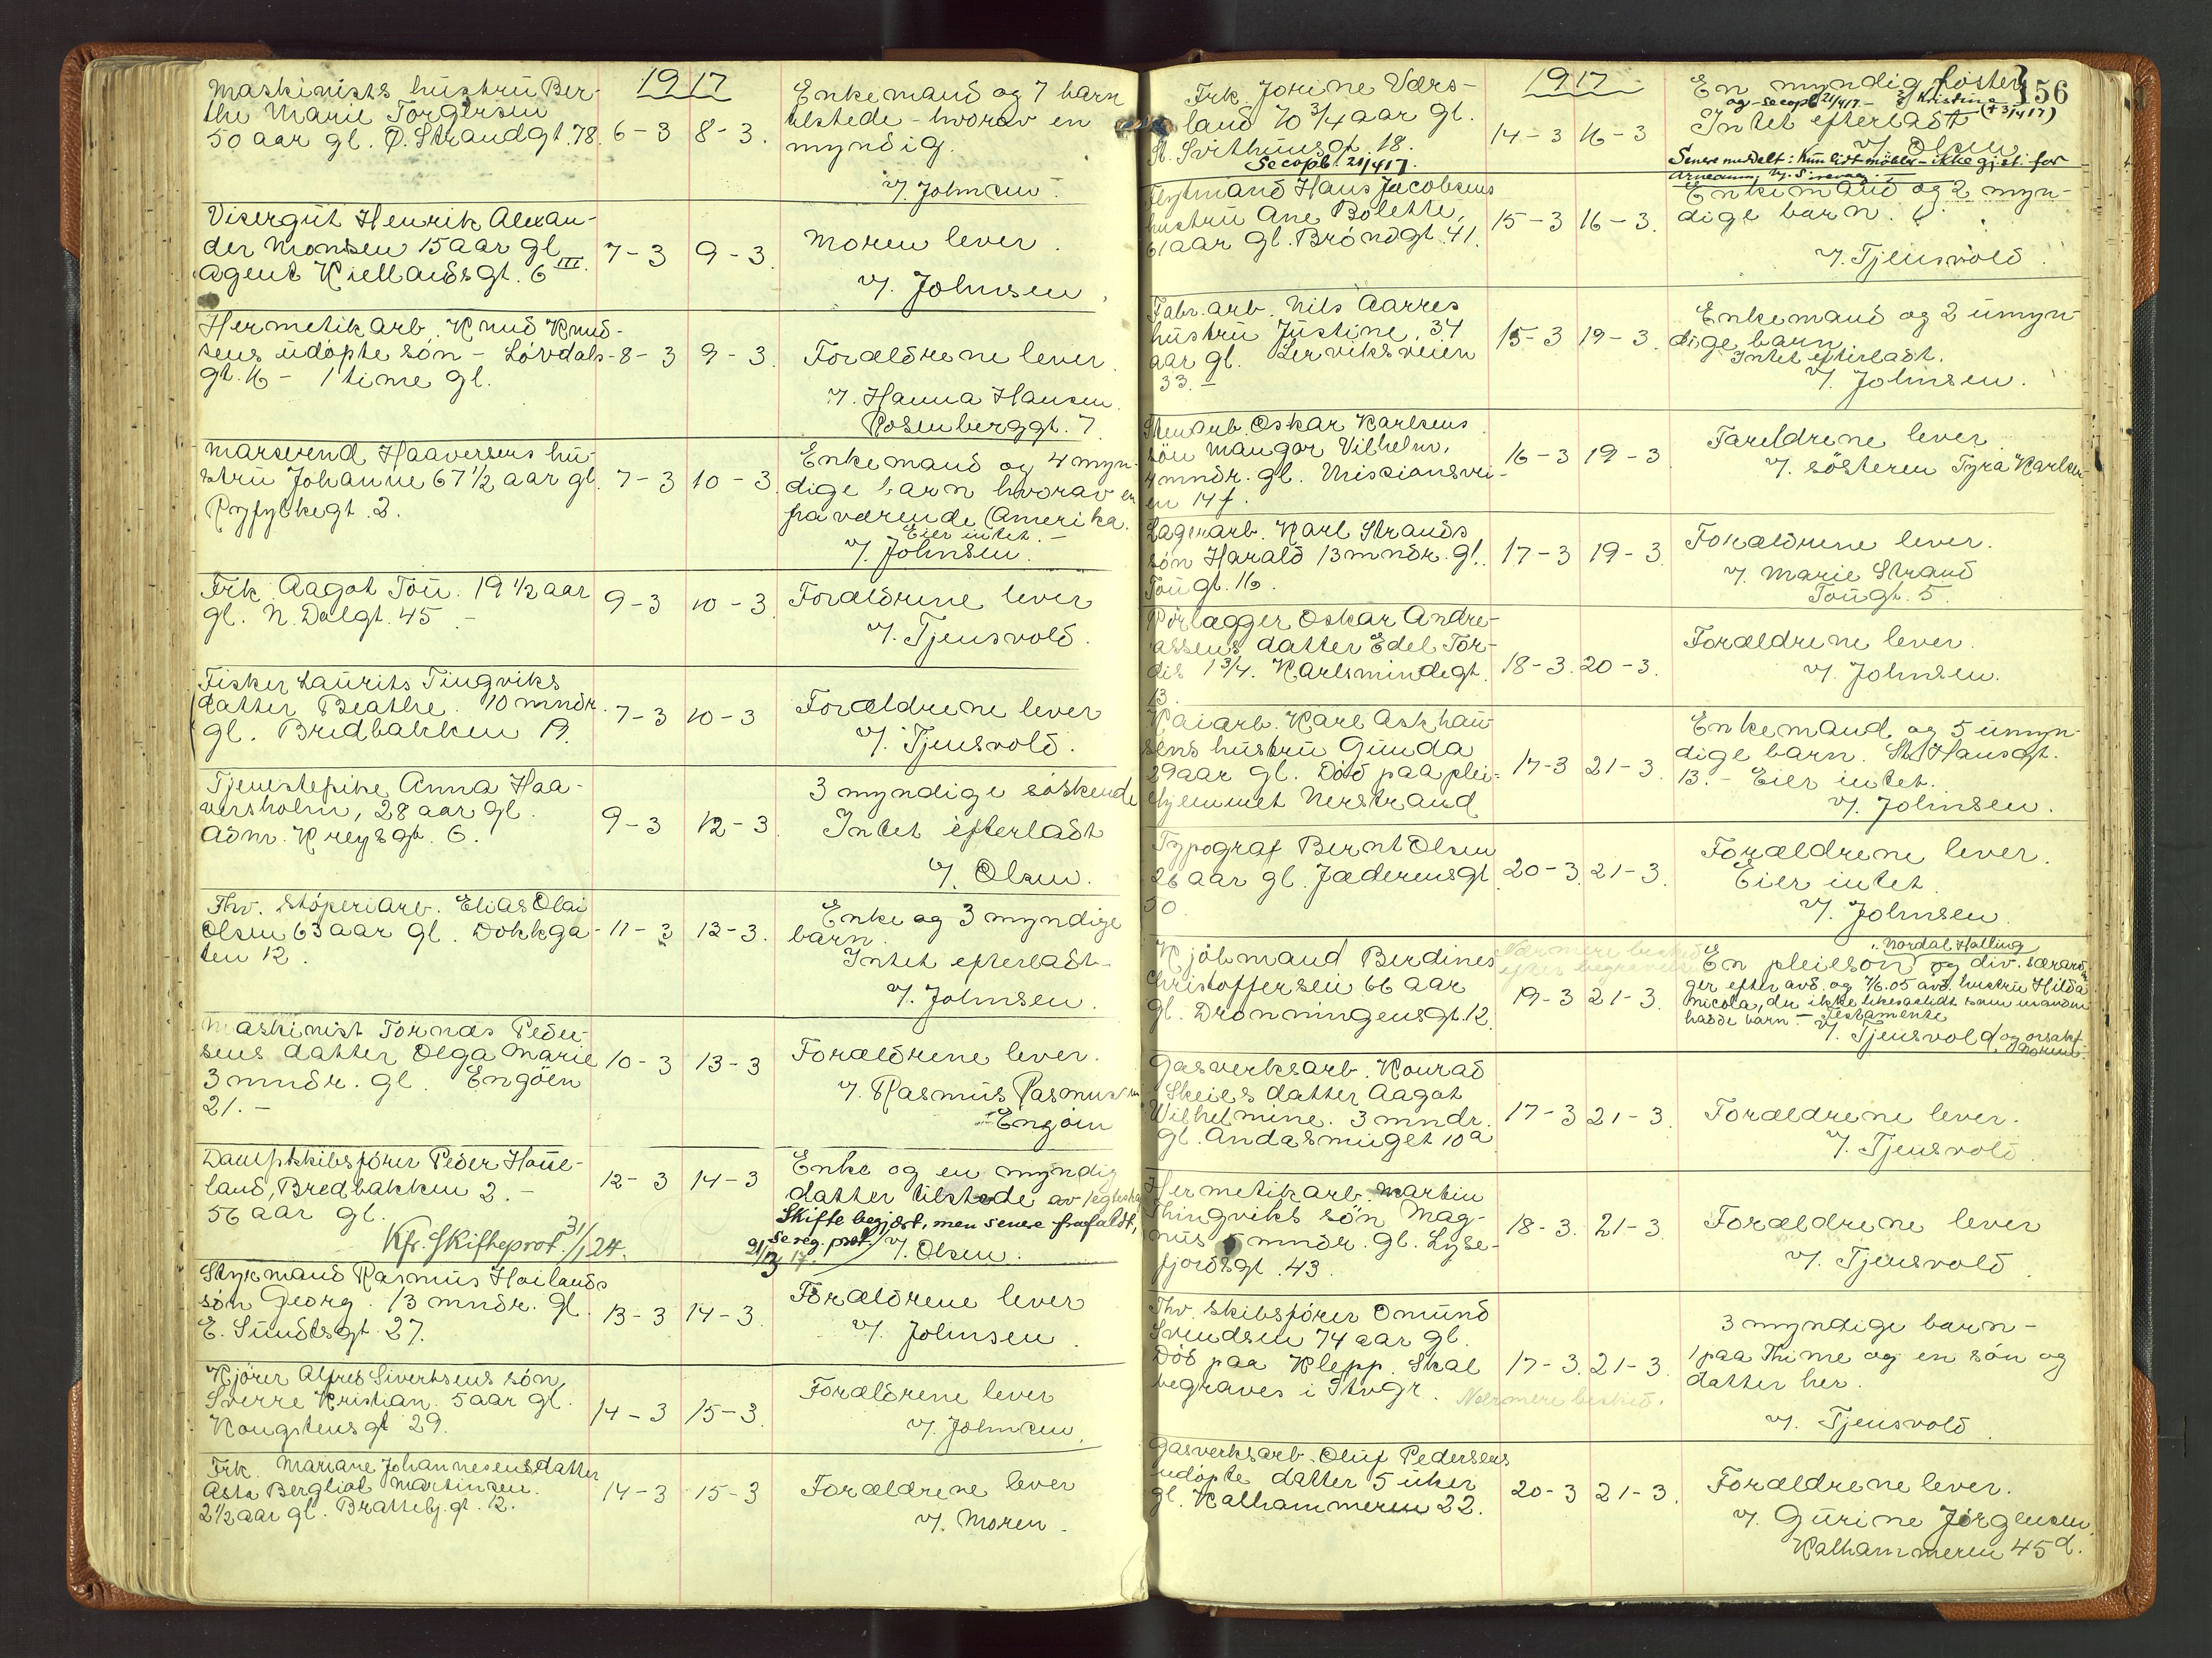 1917
Maskinists hustru Ber-
the Marie Torgersen
50 aar gl. Ø. Strandgt. 78. 6-3 8-3.
Enkemand og 7 barn
tilstede - hvorav en
myndig.
v/. Johnsen.
Visergut Henrik Alexan-
der Monsen 15 aar gl
Agent Kiellandsgt. 6 III. 7-3 9-3.
Moren lever.
v/. Johnsen.
Hermetikarb. Knud Knud-
sens udøpte søn - Løvdals- 8-3 9-3.
gt. 16 - 1 time gl.
Forældrene lever.
v/. Hanna Hansen.
Rosenberggt. 7
Haaversens hu-
stru Johanne 67 1/2 aar gl. 7-3 10-3.
Ryfylkegt. 2.
Enkemand og 4 myn-
dige barn hvorav en
fraværende (Amerika.
Eier intet. -
v/. Johnsen.
Frk. Aagot Tou. 19 1/2 aar
gl. N. Dalgt. 45. - 9-3 10-3.
Forældrene lever
v/. Tjensvold.
Fisker Laurits Tingviks
datter Beathe. 10 mndr.
gl. Bredbakken 19. 7-3 10-3
Forældrene lever
v/. Tjensvold.
Tjenestepike Anna Haa-
versholm, 28 aar gl.
Adm. Kreysgt. 6. 9-3 12-3.
3 myndige søskende
Intet efterladt
v/. Olsen.
Fhv. Støperiarb. Elias Olai
Olsen 63 aar gl. Dokkga- 11-3 12-3.
ten 12.
Enke og 3 myndige
barn.
Intet efterladt-
v/. Johnsen.
Maskinist Tornæs Peder-
sens datter Olga Marie
3 mndr. gl. Engøen 10-3 13-3
21. -
Forældrene lever.
v/. Rasmus Rasmussen
Engøen
Dampskibsfører Peder Haue-
land, Bredbakken 2. - 12-3 14-3
56 aar gl.
Kfr. Skifteprot. 31/1 24.
Enke og en myndig
datter tilstede av
Skifte begjært, men senere frafaldt,
se reg. prot. 21/3 17. v/. Olsen.
Styrmand Rasmus Hoilands
søn Georg. 13 mndr. gl.
E. Sundtsgt. 27. 13-3 14-3.
Forældrene lever
v/. Johnsen.
Kjører Alfred Sivertsens søn
Sverre Kristian. 5 aar gl.
Kongstensgt 29. 14-3 15-3.
Forældrene lever
v/. Johnsen.
Frk. Mariane Johannesens datter
Asta Bergliot Martinsen.
2 1/2 aar gl. Brattebj. gt. 12. 14-3 15-3
Forældrene lever
v/. Moren.
156
1917
Frk. Jorine Værs-
land 70 3/4 aar gl.
St. Svithunsgt. 18. 14-3 16-3
Se copb. 21/4 17.
En myndig foster
og se copb 21/4 17 - Kristine (+ 3/4 17)
Intet efterladt
v/. Olsen
Senere meddelt: Kun lidt møbler - ikke gjst. for
Flytmand Hans Jacobsens
hustru Ane Bolette,
61 aar gl. Brøndgt. 41. 15-3 16-3.
Enkemand og 2 myn-
dige barn.
v/. Tjensvold.
Fabr. arb. Nils Aarres
hustru Justine, 34
aar gl. Lerviksveien
33. - 15-3 19-3.
Enkemand og 2 umyn-
dige barn.
Intet efterladt.
v/. Johnsen.
Stenarb. Oskar Karlsens
søn Mangor Vilhelm,
4 mndr. gl. Missionsvei-
en 14 f. 16-3 19-3.
Forældrene lever
v/. søsteren Tyra Karlsen
Lagerarb. Karl Strands
søn Harald 13 mndr. gl.
Tougt. 16. 17-3 19-3.
Forældrene lever.
v/. Marie Strand
Tougt. 5.
Rørlægger Oskar Andre-
assens datter Edel Tor-
dis 1 3/4. Karlsmindegt.
13. 18-3. 20-3.
Forældrene lever.
v/. Johnsen.
Kaiarb. Karl Askhau-
sens hustru Gunda
29 aar gl. Død paa plei-
hjemmet Nerstrand 17-3 21-3.
Enkemand og 5 umyn-
dige barn. St. Hansgt.
13. - Eier intet.
v/. Johnsen.
Typograf Bernt Olsen
26 aar gl. Jæderensgt
50. 20-3. 21-3.
Forældrene lever.
Eier intet.
v/. Johnsen.
Kjøbmand Berdines
Christoffersen 66 aar
gl. Dronningensgt. 12. 19-3 21-3.
Nærmere beskeed
efter begravelsen
Nordal Halling
En pleiesøn og div. særarvin-
ger efter avd. og 7/6.05 avd. hustru Hilda
Nicola, der ikke likesaalidt som manden
hadde barn. - Testamente
v/. Tjensvold og
Gasverksarb. Konrad
Skeies datter Aagot
Wilhelmine. 3 mndr.
gl. Andasmuget 10a 17-3 21-3.
Forældrene lever.
v/. Tjensvold.
Hermetikarb. Martin
Thingviks søn Mag-
nus 5 mndr. gl. Lyse-
fjordsgt. 43. 18-3. 21-3.
Forældrene lever
v/. Tjensvold.
Fhv. skibsfører Omund
Svendsen 74 aar gl.
Død paa Klepp. Skal
begraves i Stvgr. 17-3. 21-3.
Nærmere beskeed.
3 myndige barn -
1 paa Thime og en søn og
datter her.
v/. Tjensvold.
Gasverksarb. Oluf Pedersens
udøpte datter 5 uker
gl. Kalhammeren 22. 20-3 21-3.
Forældrene lever.
v/. Gurine Jørgensen.
Kalhammeren 45 d.